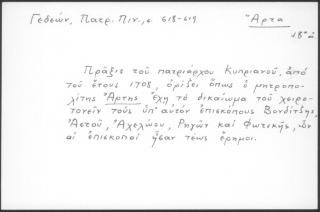 Γεδεών, Πατρ. Πιν., σ. 618-619
Ἄρτα
18ος
Πρᾶξις τοῦ πατριάρχου Κυπριανοῦ, ἀπὸ
τοῦ ἔτους 1708, ὁρίζει ὅπως ὁ μητροπο-
λίτης Ἄρτης ἔχῃ τὸ δικαίωμα τοῦ χειρο-
τονεῖν τοὺς ὑπ' αὐτὸν ἐπισκόπους Βονδίτζης,
Ἀετοῦ, Ἀχελῴου, Ῥηγῶν καὶ Φωτικῆς, ὧν
αἱ ἐπισκοπαὶ ἦσαν τέως ἔρημοι.